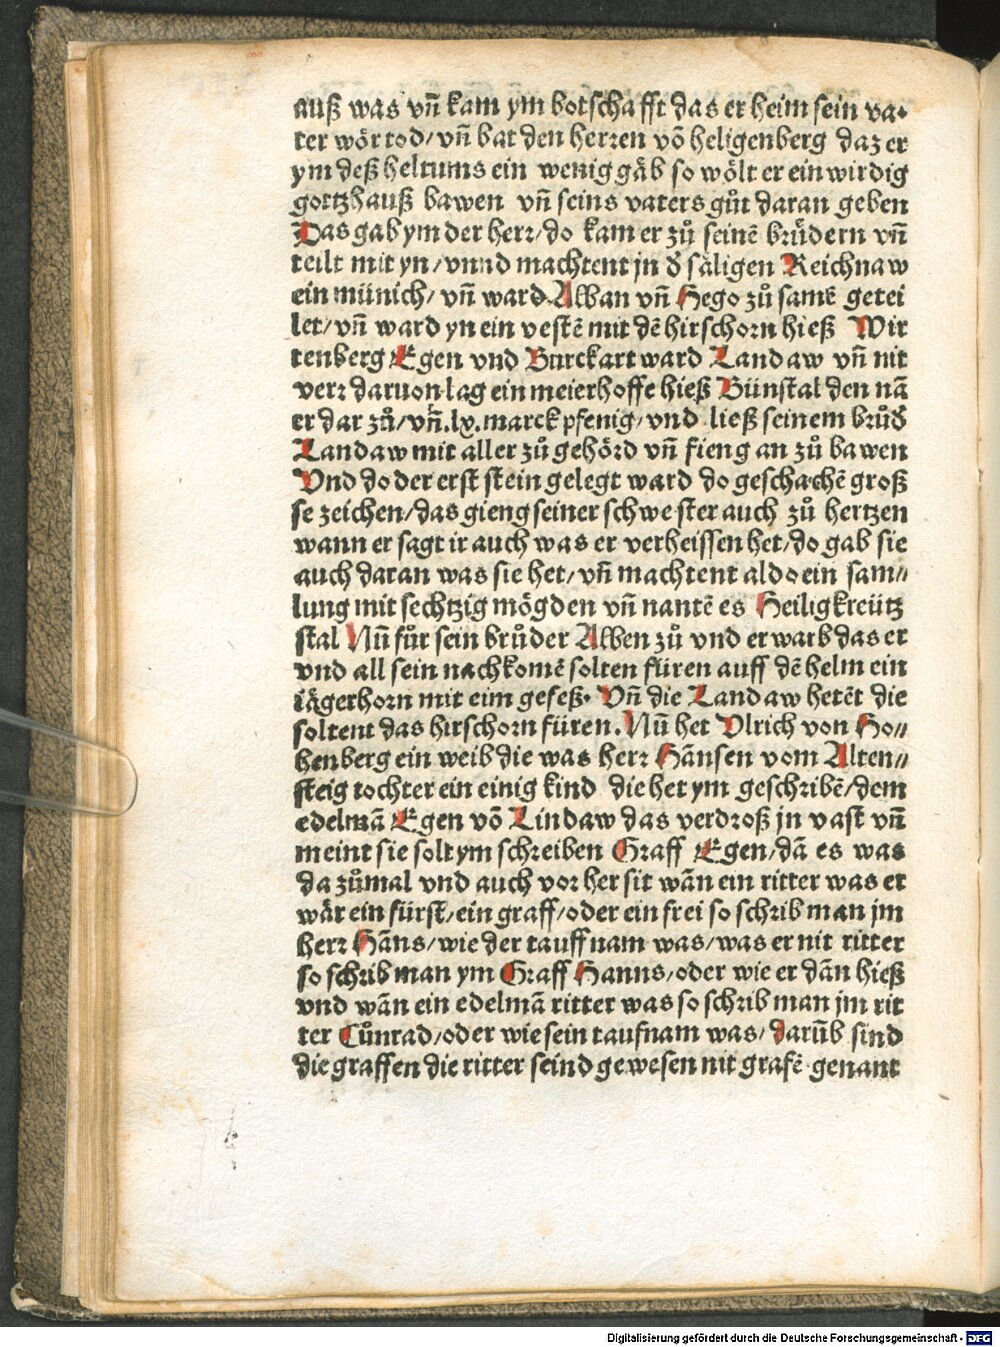 auß was vn̄ kam ym botschafft das er heim sein va⸗
ter wör tod/ vn̄ bat den herren vō heligenberg daz er
ym deß heltums ein wenig gäb so wölt er ein wirdig
gottzhauß bawen vn̄ seins vaters gůt daran geben
Das gab ym der herr/ do kam er zů seinē brůdern vn̄
teilt mit yn/ vnnd machtent jn d̓ säligen Reichnaw
ein münich/ vn̄ ward Alban vn̄ Hego zů samē getei
let/ vn̄ ward yn ein vestē mit dē hirschorn hieß Wir
tenberg Egen vnd Burckart ward Landaw vn̄ nit
verr daruon lag ein meierhoffe hieß Bünstal den nā
er dar zů/ vn̄ .lx. marck pfenig/ vnd ließ seinem brůd̓
Landaw mit aller zů gehörd vn̄ fieng an zů bawen
Vnd do der erst stein gelegt ward do geschachē groß
se zeichen/ das gieng seiner schwester auch zů hertzen
wann er sagt ir auch was er verheissen het/ do gab sie
auch daran was sie het/ vn̄ machtent aldo ein sam⸗
lung mit sechtzig mögden vn̄ nantē es Heiligkreütz
stal Nūn fůr sein brůder Alben zů vnd erwarb das er
vnd all sein nachkomē solten füren auff dē helm ein
iägerhorn mit eim gefeß. Vn̄ die Landaw hetēt die
soltent das hirschorn füren. Nūn het Vlrich von Ho⸗
henberg ein weib die was herr Hānsen vom Alten⸗
steig tochter ein einig kind die het ym geschribē/ dem
edelmā Egen vō Lindaw das verdroß jn vast vn̄
meint sie solt ym schreiben Graff Egen/ dā es was
da zůmal vnd auch vor her sit wān ein ritter was er
wär ein fürst/ ein graff/ oder ein frei so schrib man jm
herr Hāns/ wie der tauff nam was/ was er nit ritter
so schrib man ym Graff Hanns/ oder wie er dān hieß
vnd wān ein edelmā ritter was so schrib man jm rit
ter Cůnrad/ oder wie sein taufnam was/ darūb sind
die graffen die ritter seind gewesen nit grafē genant
Digitalisierung gefördert durch die Deutsche Forschungsgemeinschaft - DFG